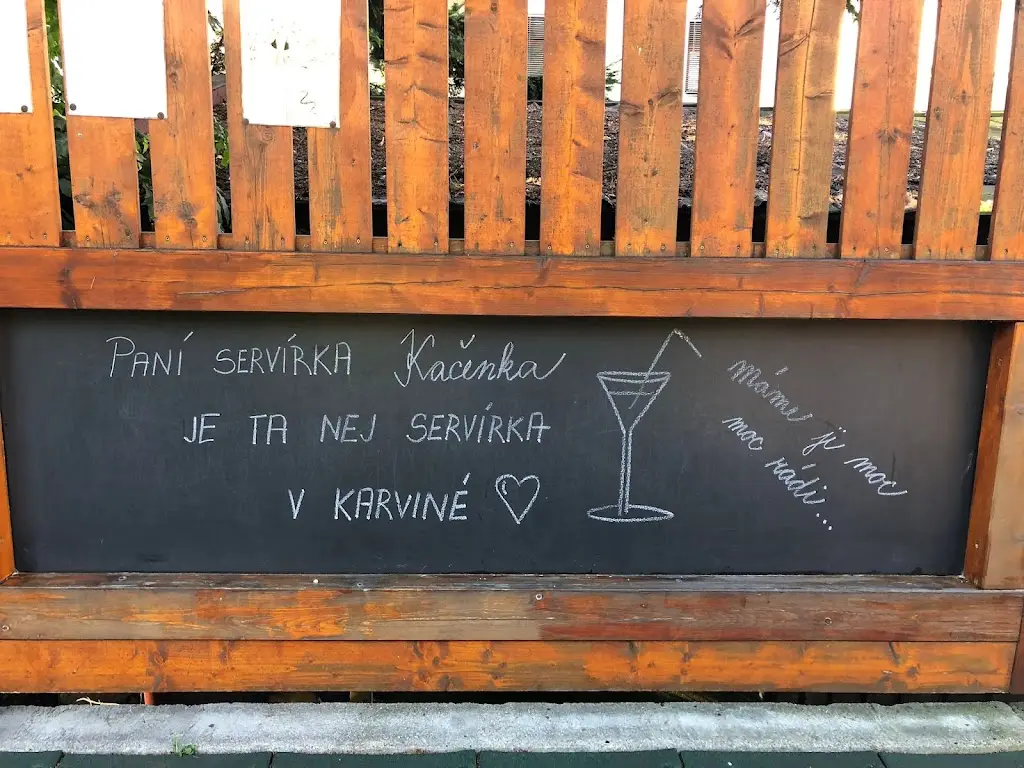 PANÍ SERVÍRKA Kačenka
JE TA NEJ SERVÍRKA
V KARVINÉ
máme ji moc
moc rádi...